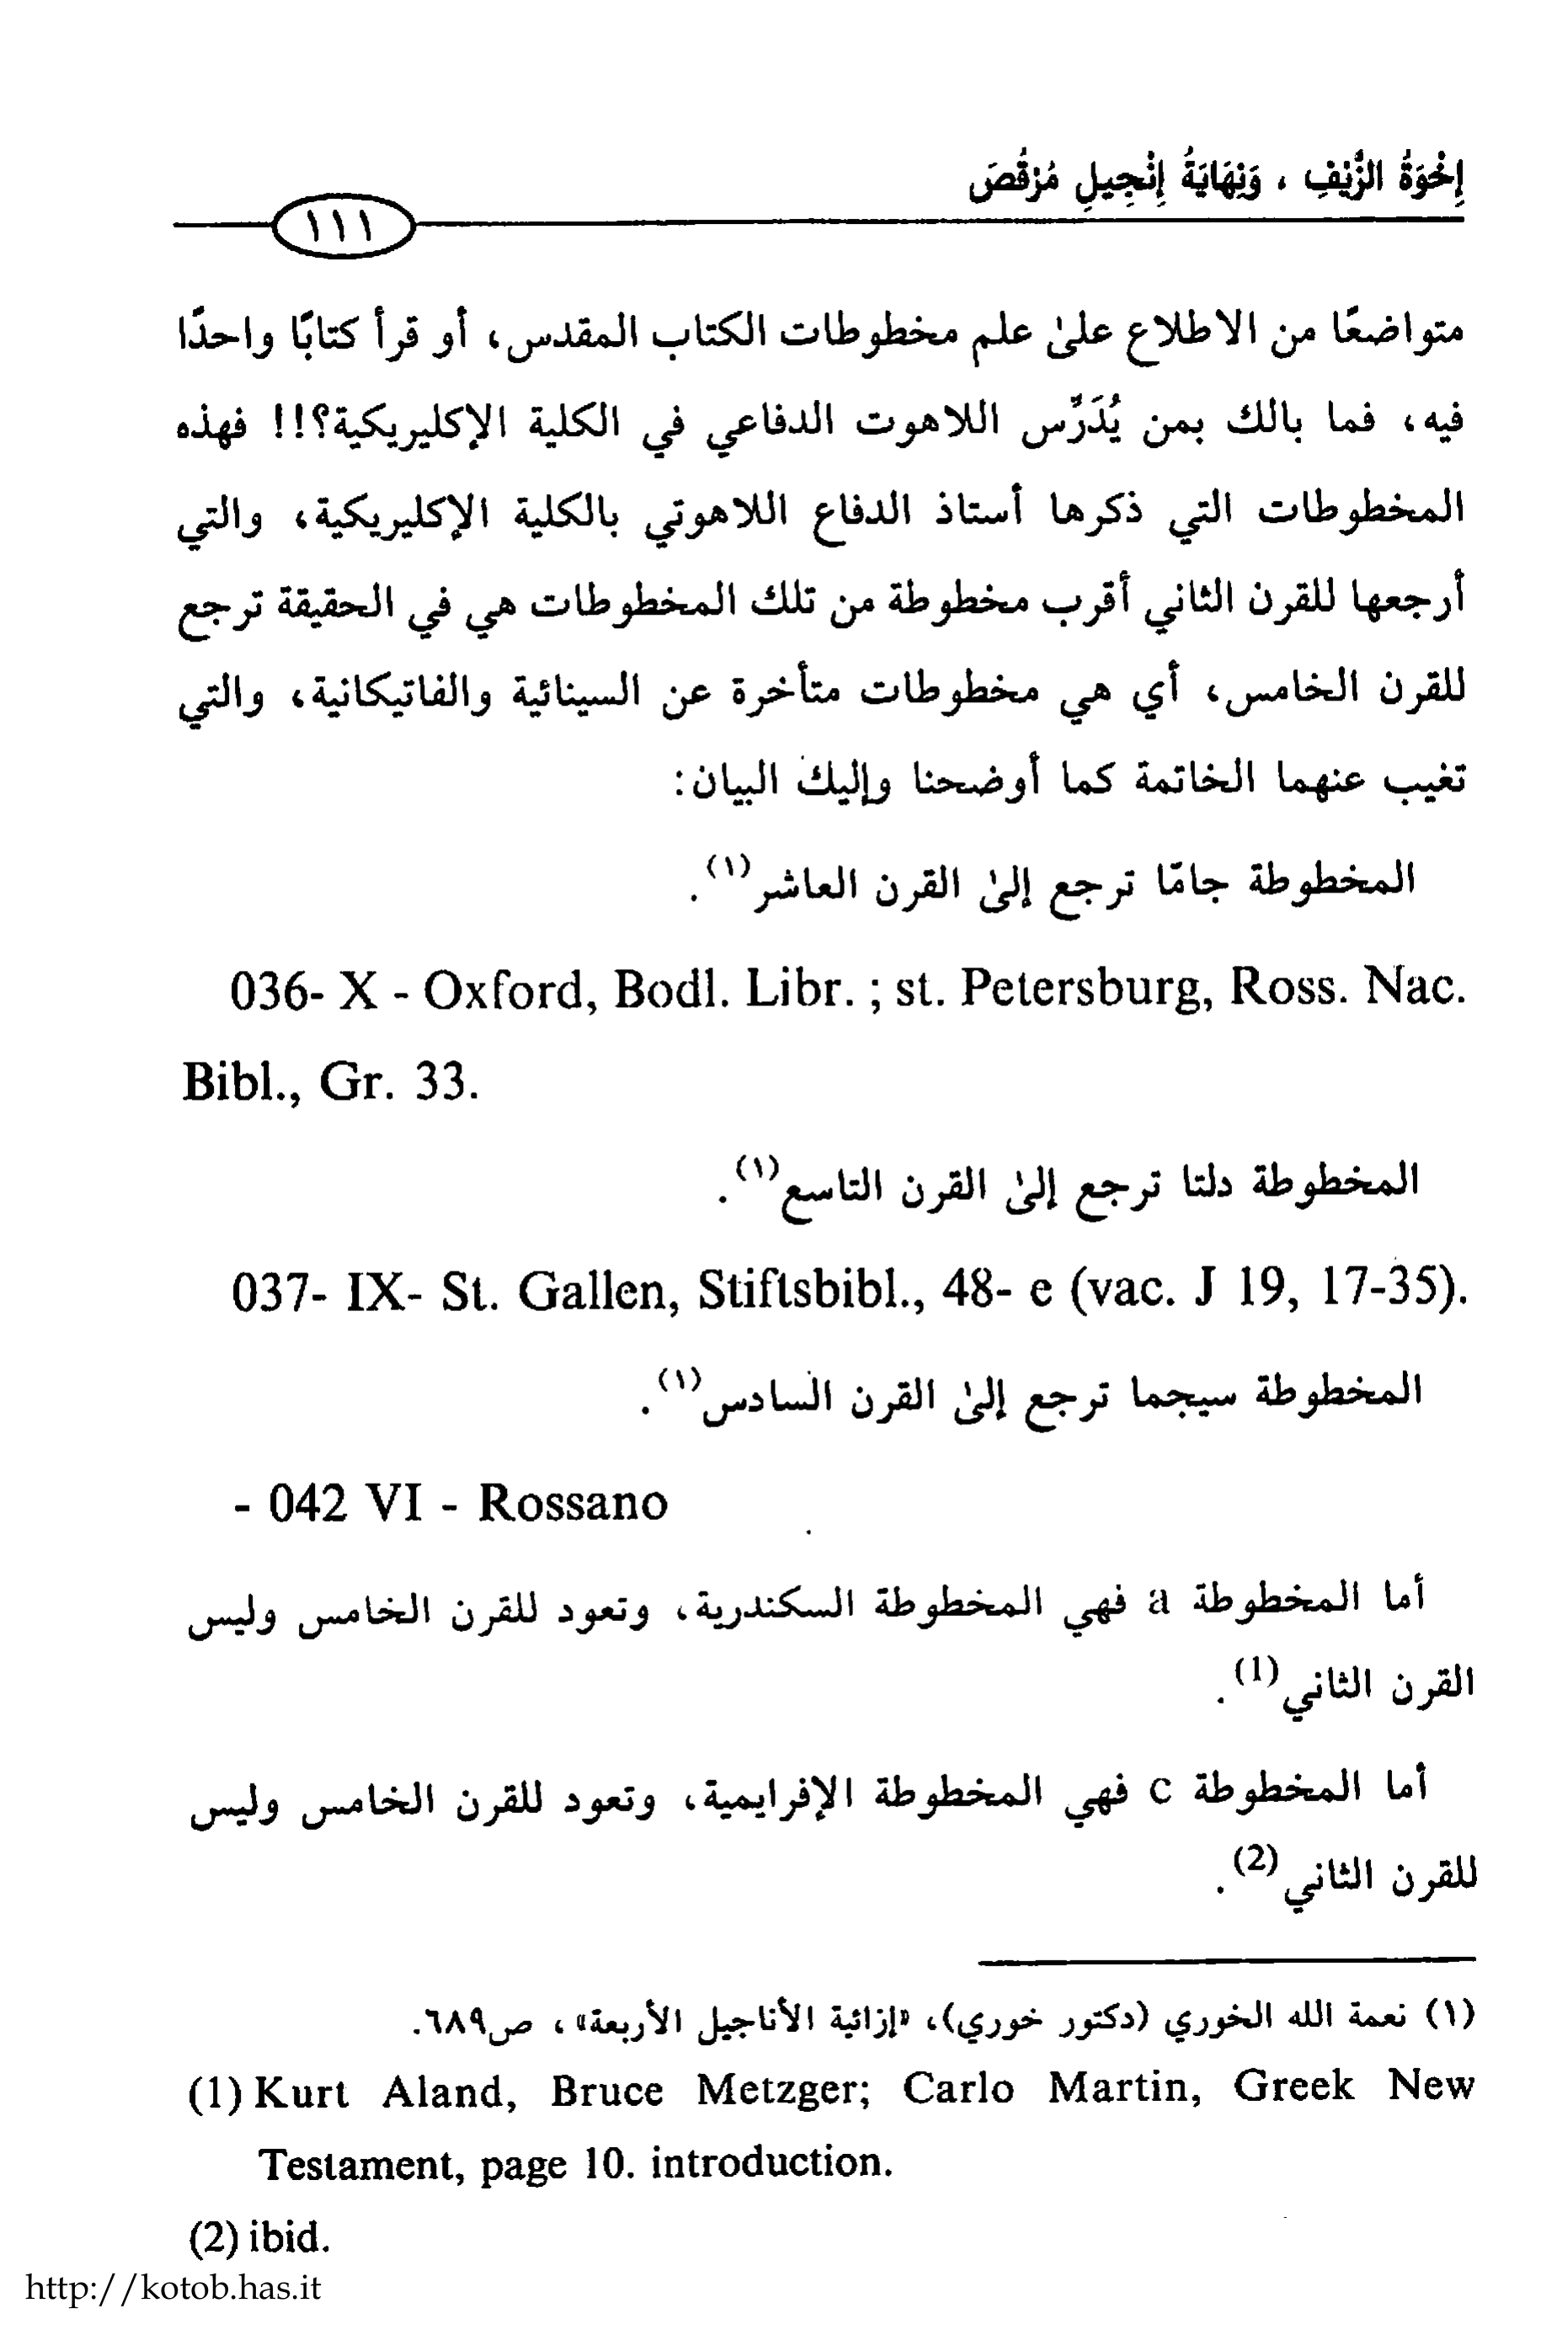 إِخْوَةُ الزَّيْفِ ، وَنِهَايَةُ إِنْجِيلِ مُرْقُصَ
١١١
متواضعًا من الاطلاع علىٰ علم مخطوطات الكتاب المقدس، أو قرأ كتابًا واحدًا
فيه، فما بالك بمن يُدَرِّس اللاهوت الدفاعي في الكلية الإكليريكية؟!! فهذه
المخطوطات التي ذكرها أستاذ الدفاع اللاهوتي بالكلية الإكليريكية، والتي
أرجعها للقرن الثاني أقرب مخطوطة من تلك المخطوطات هي في الحقيقة ترجع
للقرن الخامس، أي هي مخطوطات متأخرة عن السينائية والفاتيكانية، والتي
تغيب عنهما الخاتمة كما أوضحنا وإليك البيان:
المخطوطة جامّا ترجع إلىٰ القرن العاشر(١).
036- X - Oxford, Bodl. Libr. ; st. Petersburg, Ross. Nac.
Bibl., Gr. 33.
المخطوطة دلتا ترجع إلىٰ القرن التاسع(١).
037- IX- St. Gallen, Stiftsbibl., 48- e (vac. J 19, 17-35).
المخطوطة سيجما ترجع إلىٰ القرن السادس(١).
- 042 VI - Rossano
أما المخطوطة a فهي المخطوطة السكندرية، وتعود للقرن الخامس وليس
القرن الثاني(1).
أما المخطوطة c فهي المخطوطة الإفرايمية، وتعود للقرن الخامس وليس
للقرن الثاني(2).
(١) نعمة الله الخوري (دكتور خوري)، «إزائية الأناجيل الأربعة»، ص٦٨٩.
(1) Kurt Aland, Bruce Metzger; Carlo Martin, Greek New
Testament, page 10. introduction.
(2) ibid.
http://kotob.has.it